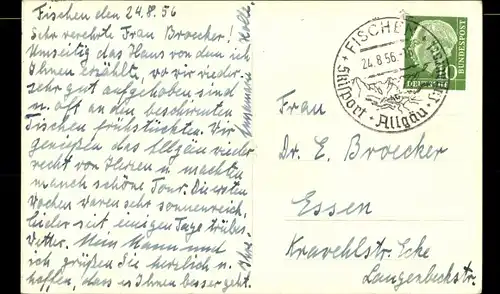 Fischen den 24.8.56
Sehr verehrte Frau Broecker!
Umseitig das Haus von dem ich
Ihnen erzählte, wo wir wieder
sehr gut aufgehoben sind
u. oft an den beschirmten
Tischen frühstückten. Wir
genießen das Allgäu wieder
recht von Herzen u. machten
manch schöne Tour. Die ersten
Wochen waren sehr sonnenreich,
leider seit einigen Tage trübes
Wetter. Mein Mann und
ich grüßen Sie herzlich u.
hoffen, dass es Ihnen besser geht.
Ihre
Annemarie
FISCHEN
24.8.56
Skisport · Allgäu
DEUTSCHE
BUNDESPOST
10
Frau
Dr. E. Broecker
Essen
Kravehlstr. Ecke
Langenbeckstr.